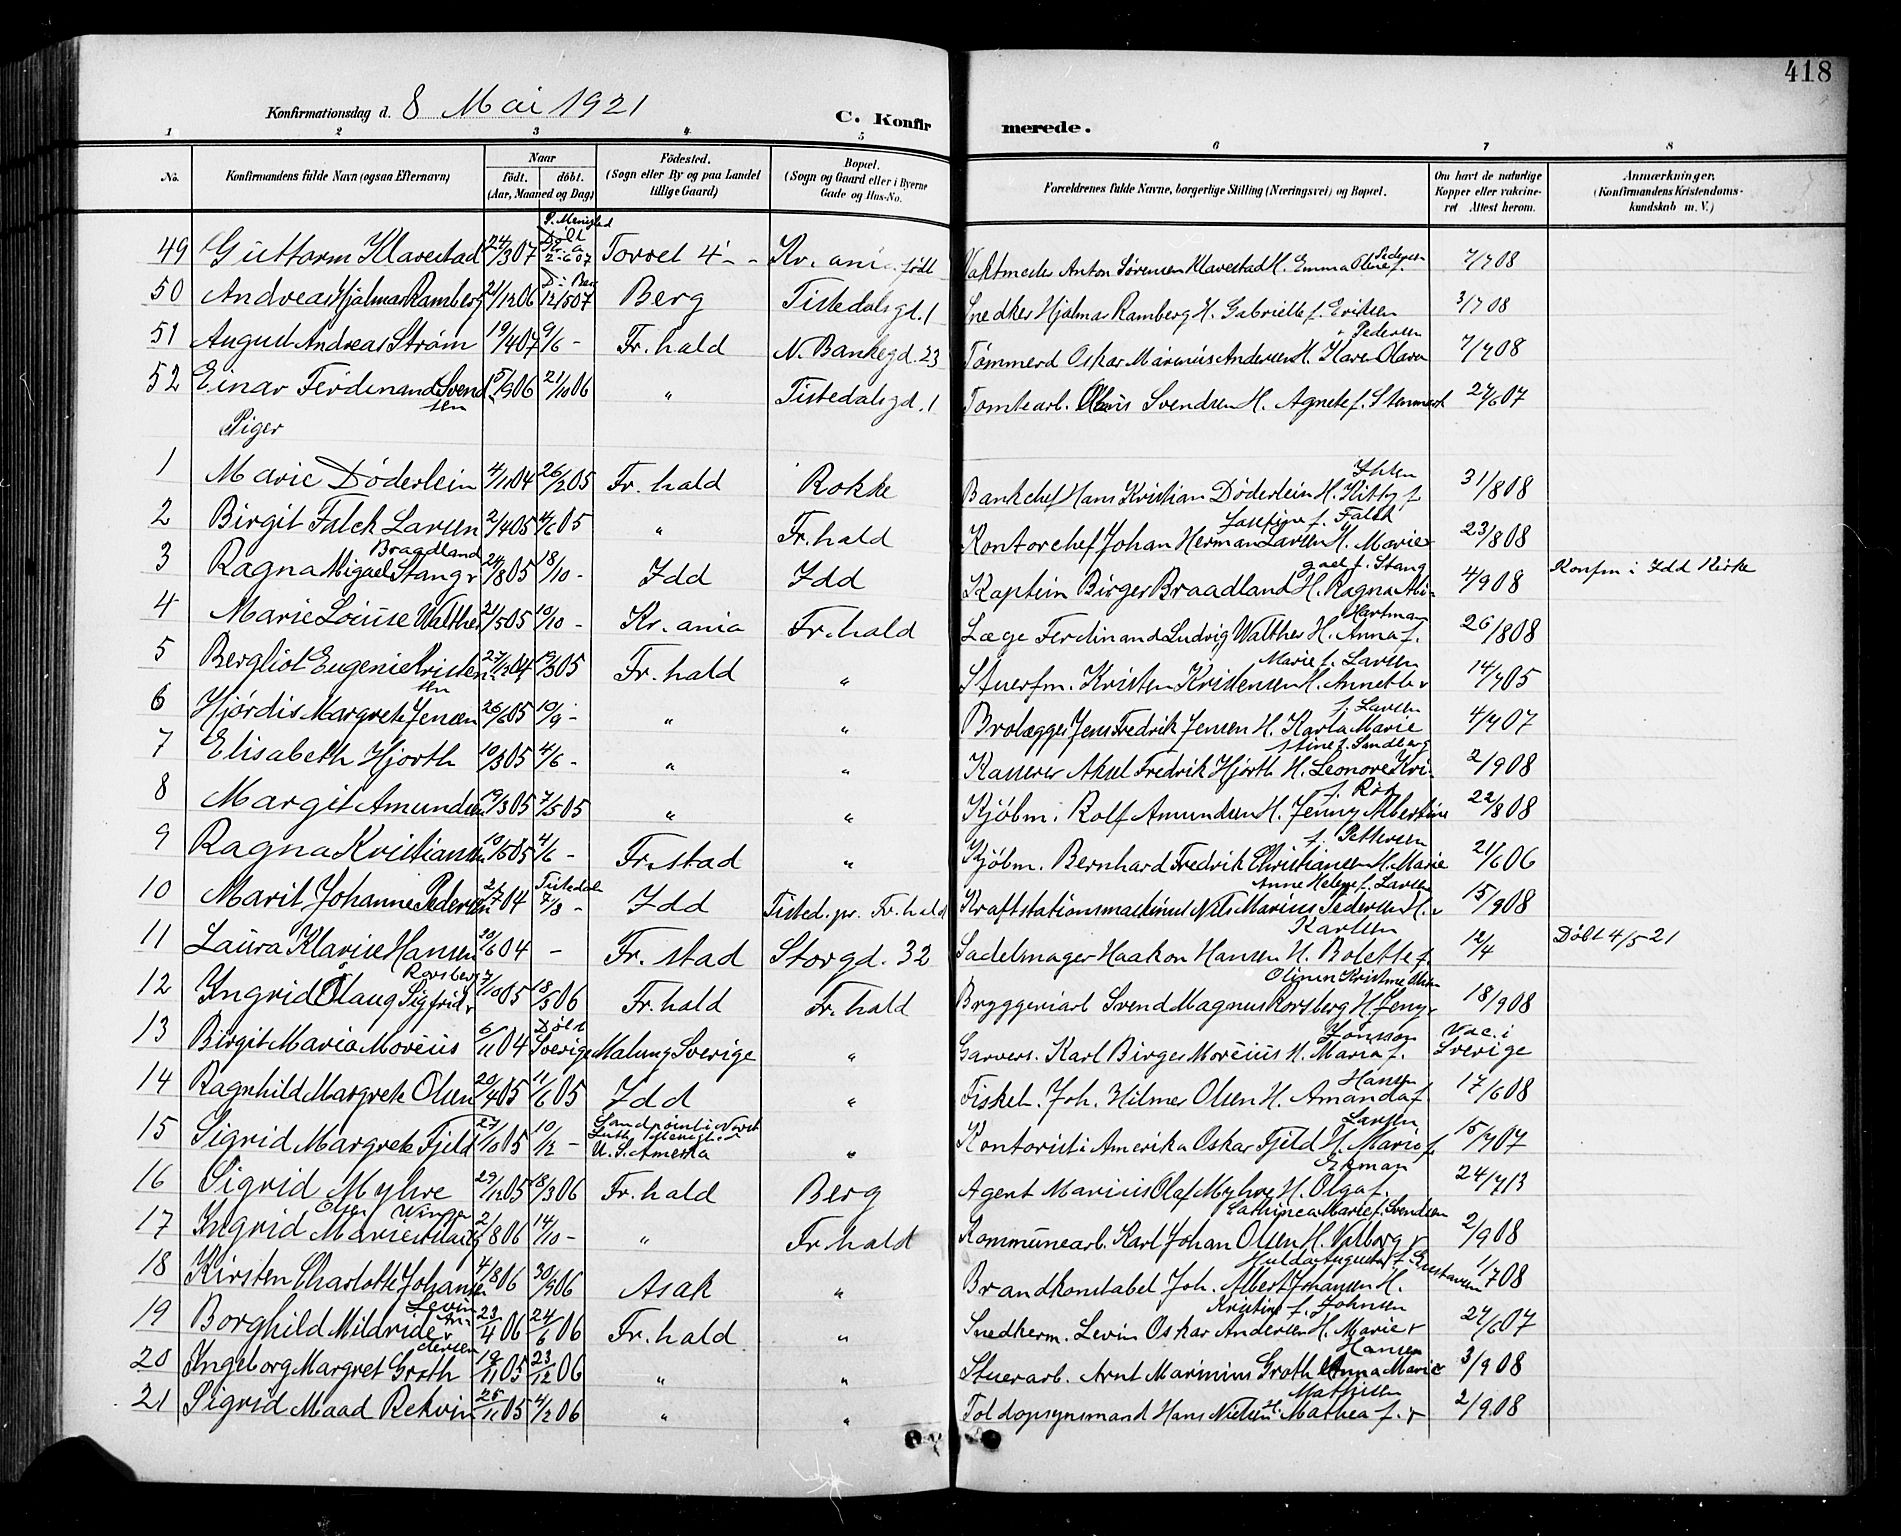 418
Konfirmationsdag d. 8 Mai 1921
C. Konfirmerede.
1 2 3 4 5 6 7 8
No. Konfirmandens fulde Navn (ogsaa Efternavn) Naar födt. döbt. (Aar, Maaned og Dag) Födested. (Sogn eller By og paa Landet tillige Gaard) Bopæl. (Sogn og Gaard eller i Byerne Gade og Hus-No. Forældrenes fulde Navne, borgerlige Stilling (Næringsvei) og Bopæl. Om havt de naturlige Kopper eller vakcineret Attest herom. Anmærkninger. (Konfirmandens Kristendomskundskab m. V.)
49 Guttorm Klavestad 24/3 07 Torvet 4 Kr.ania født Vaktmester Anton Sørensen Klavestad H. Emma Oline f. Pedersen 7/7 08
50 Andreas Hjalmar Ramberg 21/12 06 12/5 07 Berg Tistedalsgd. 1 Snedker Hjalmar Ramberg H. Gabrielle f. Eriksen 3/7 08
51 August Andreas Strøm 19/4 07 9/6 - Fr.hald N. Bankegd. 23 Tømmerd Oskar Marinius Andersen H. Karen Olava f. Pedersen 7/7 08
52 Einar Ferdinand Svendsen 15/9 06 21/10 06 " Tistedalsgd. 1 Tomtearb. Svendsen H. Agnete f. Stenmark 24/6 07
Piger
1 Marie Døderlein 4/11 04 26/2 05 Fr. hald Rokke Bankchef Hans Kristian Døderlein H. Kitty f. Ihlen 31/8 08
2 Birgit Falck Larsen 2/4 05 4/6 05 " Fr.hald Kontorchef Johan Herman Larsen H. Marie Josefine f. Falck 23/8 08
3 Ragna Migael Stang Braadland 24/8 05 18/10 - Idd Idd Kaptein Birger Braadland H. Ragna Migael f. Stang 4/9 08 Konfm i Idd Kirke
4 Marie Louise Walther 21/5 05 10/10 - Kr.ania Fr.hald Læge Ferdinand Ludvig Walther H. Anna f. Hartman 26/8 08
5 Bergliot Eugenie Kristensen 27/12 04 19/3 05 Fr. hald " Stuerfm. Kristen Kristensen H. Annette Marie f. Larsen 14/7 05
6 Hjørdis Margrete Jensen 26/6 05 10/9 - " " Brolægger Jens Fredrik Jensen H. Karla Marie f. Larsen 4/7 07
7 Elisabeth Hjorth 10/3 05 4/6 - " " Kasserer Aksel Fredrik Hjorth H. Leonore Kristine f. Sandberg 2/9 08
8 Margit Amundsen 19/3 05 7/5 05 " " Kjøbm. Rolf Amundsen H. Jenny Albertine f. Röd 22/8 08
9 Ragna Kristiansen 10/3 05 4/6 - Fr.stad " Kjøbm. Bernhard Fredrik Christiansen H. Marie f. Pettersen 21/6 06
10 Marit Johanne Pedersen 2/7 04 Tistedalen 7/8 - Idd Tisted. pr. Fr.hald Kraftstationsmaskinist Nils Marius Pedersen H. Anne Helene f. Larsen 15/9 08
11 Laura Klarise Hansen 30/6 04 - Fr. stad Storgd. 32 Sadelmager Haakon Hansen H. Bolette f. Karlsen 12/4 Døbt 4/5 21
12 Ingrid Olaug Sigfrid Rorsberg 7/10 05 18/3 06 Fr.hald Fr.hald Bryggeriarb Svend Magnus Rorsberg H. Jenny Olinea Kristine 18/9 08
13 Birgit Maria Moréus 6/11 04 Döbt Sverige Malung Sverige " Garvers. Karl Birger Moréus H. Maria f. Jonsson Vac. i Sverige
14 Ragnhild Margrete Olsen 20/4 05 11/6 05 Idd " Fisket. Joh. Hilmer Olsen H. Amanda f. Hansen 17/6 08
15 Sigrid Margrete Fjeld 27/10 05 10/12 - Sandpoint i Norsk Luth. Menighed U. S. Amerika " Kontorist i Amerika Oskar Fjeld H. Marie f. Larsen 15/7 07
16 Sigrid Myhre 29/12 05 18/3 06 Fr.hald Berg Agent Marius Olaf Myhre H. Olga f. Ekman 24/7 13
17 Ingrid Marie Olsen 2/8 06 14/10 - " Fr.hald Kommunearb. Karl Johan Olsen H. Valborg Cathinea Marie f. Svendsen 2/9 08
18 Kirsten Charlotte Johansen 4/8 06 30/9 06 Asak " Brandkonstabel Joh. Albert Johansen H. Hulda Augusta f. Gustavsen 1/7 08
19 Borghild Mildride Levin Andersen 23/4 06 24/6 06 Fr.hald " Snedkerm. Levin Oskar Andersen H. Marie Kristine f. Johnsen 24/6 07
20 Ingeborg Margret Groth 19/11 05 23/12 06 " " Stuerarb. Arnt Marinius Groth Anna Marie Hansen 3/9 08
21 Sigrid Maad Rekvin 25/11 05 4/2 06 " " Toldopsynsmand Hans Nielsen H. Mathea f. Mathisen 2/9 08